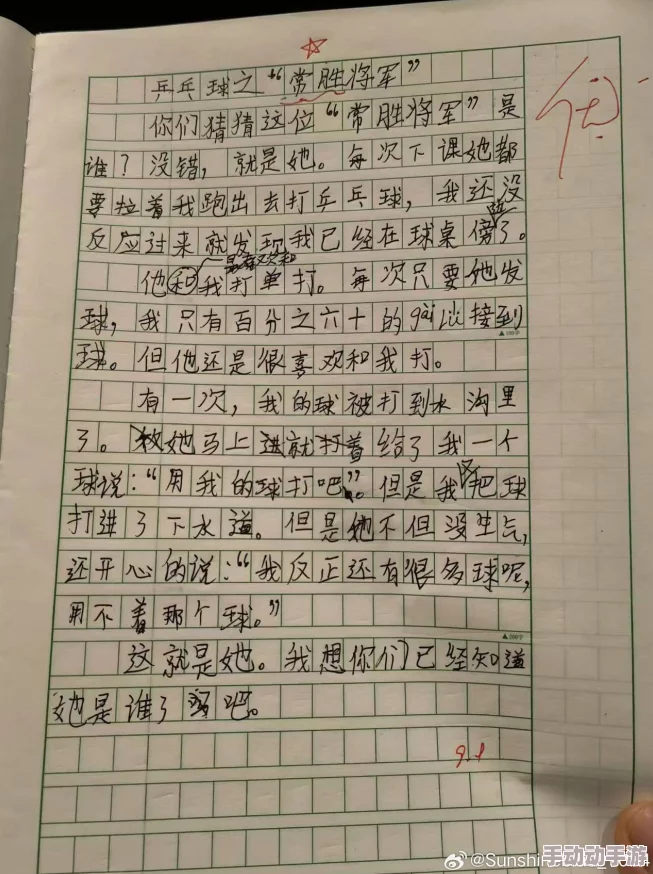 乒乓球之“常胜将军”
你们猜猜这位“常胜将军”是
谁？没错，就是她。每次下课她都
要拉着我跑出去打乒乓球，我还没
反应过来就发现我已经在球桌傍了。
最喜欢和
他和我打单打。每次只要她发
球，我只有百分之六十的gài lǜ接到
球。但他还是很喜欢和我打。
有一次，我的球被打到水沟里
了。她马上就给了我一个
球说：“用我的球打吧”。但是我又把球
打进了下水道。但是她不但没生气，
还开心的说：“我反正还有很多球呢，
用不着那个球。”
这就是她。我想你们已经知道
她是谁了吧。
优
9.1
@Sunshin
手动动手游